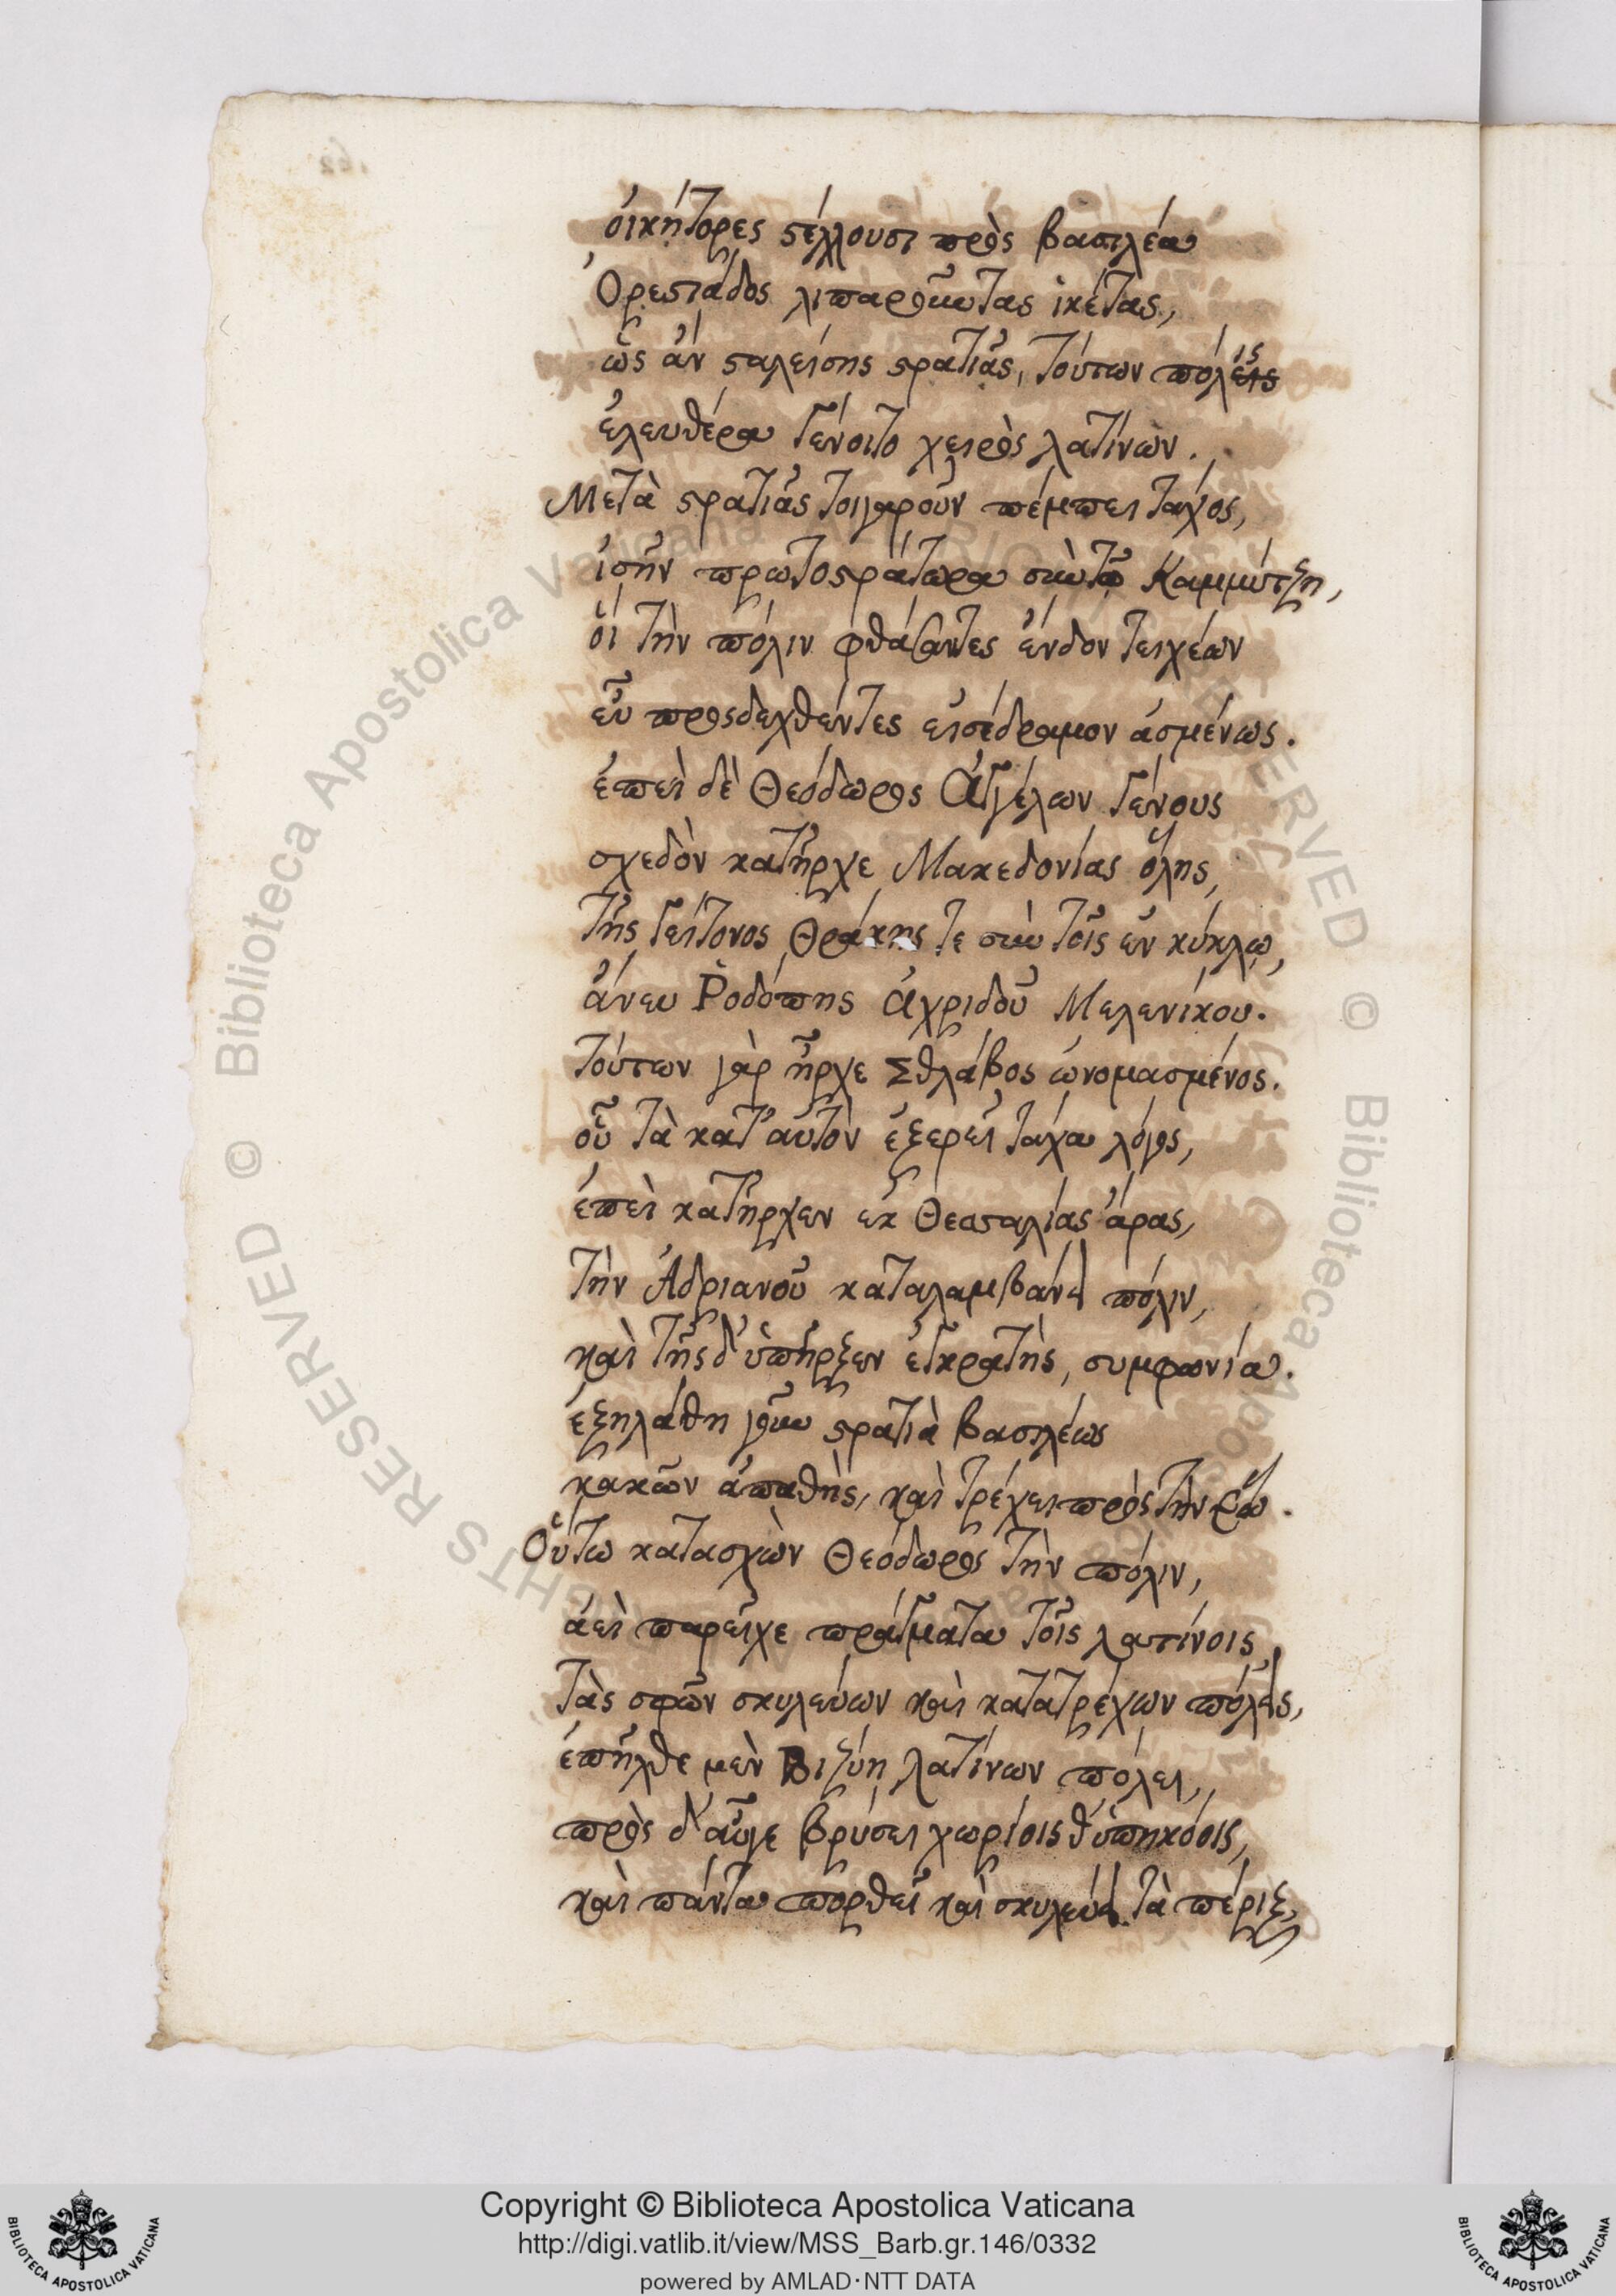 οἰκήτορες στέλλουσι πρὸς βασιλέα
Ὀρεστιάδος λιπαροῦντας ἱκέτας,
ὡς ἂν σταλείσης στρατιᾶς, τούτων πόλις
ἐλευθέρα γένοιτο χειρὸς λατίνων.
Μετὰ στρατιᾶς τοιγαροῦν πέμπει τάχος,
ἰσῆν πρωτοστράτορα σὺν τῷ Καμμύτζη,
οἱ τὴν πόλιν φθάσαντες ἔνδον τειχέων
εὖ προσδεχθέντες εἰσέδραμον ἀσμένως.
ἐπεὶ δὲ Θεόδωρος Ἀγγέλων γένους
σχεδὸν κατῆρχε Μακεδονίας ὅλης,
τῆς γείτονος Θράκης τε σὺν τοῖς ἐν κύκλῳ,
ἄνευ Ῥοδόπης Ἀχριδοῦ Μελενίκου.
τούτων γὰρ ἦρχε Σθλάβος ὠνομασμένος.
οὗ τὰ κατ' αὐτὸν ἐξερεῖ τάχα λόγος,
ἐπεὶ κατῆρχεν ἐκ Θεσσαλίας ἄρας,
τὴν Ἀδριανοῦ καταλαμβάνει πόλιν,
καὶ τῆς δ' ὑπῆρξεν ἐγκρατὴς, συμφωνία.
ἐξηλάθη γοῦν στρατιὰ βασιλέως
κακῶν ἀπαθὴς, καὶ τρέχει πρὸς τὴν ἕω.
Οὕτω κατασχὼν Θεόδωρος τὴν πόλιν,
ἀεὶ παρεῖχε πράγματα τοῖς λατίνοις,
τὰς σφῶν σκυλεύων καὶ κατατρέχων πόλεις,
ἐπῆλθε μὲν Βιζύη λατίνων πόλει,
πρὸς δ' αὖγε βρύσει χωρίοις θ' ὑπηκόοις,
καὶ πάντα πορθεῖ καὶ σκυλεύει τὰ πέριξ,
Copyright © Biblioteca Apostolica Vaticana
http://digi.vatlib.it/view/MSS_Barb.gr.146/0332
powered by AMLAD·NTT DATA